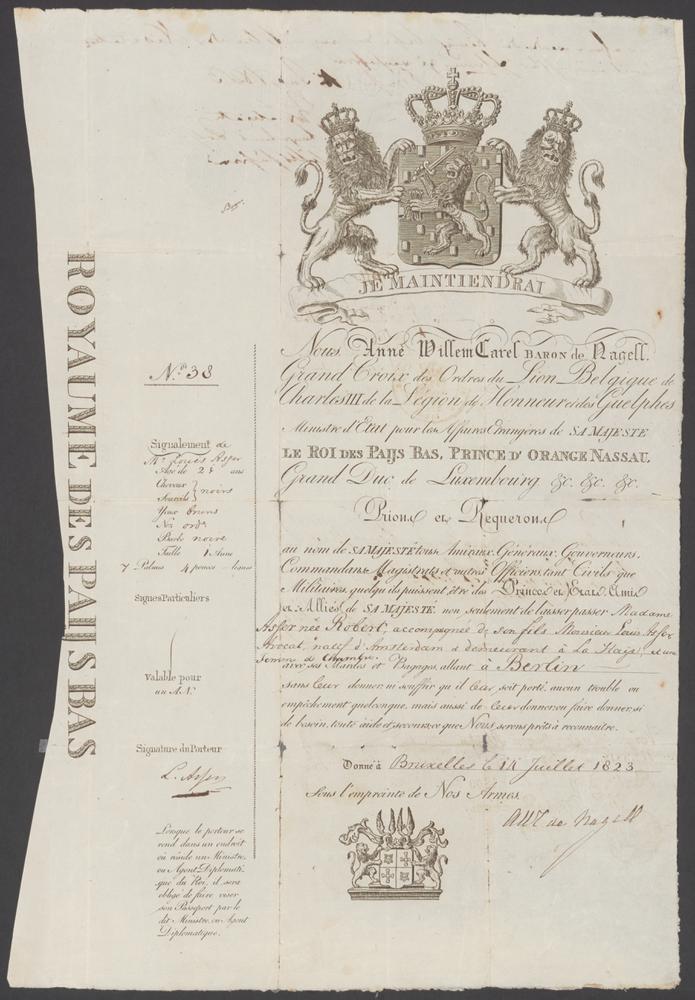 JE MAINTIENDRAI
ROYAUME DES PAIJS BAS
Nous, Anne Willem Carel BARON de Nagell,
Grand Croix des Ordres du Lion Belgique de
Charles III de la Légion de Honneur et des Guelphes
Ministre d'Etat pour les Affaires Etrangeres de SA MAJESTE
LE ROI DES PAIJS BAS, PRINCE D'ORANGE NASSAU,
Grand Duc de Luxembourg &c. &c. &c.
Prions et Requerons
au nom de SA MAJESTÉ tous Amiraux, Généraux, Gouverneurs,
Commandans, Magistrats et autres Officiers, tant Civils que
Militaires, quelqu'ils puissent être des Princes et Etats Amis
et Alliés de SA MAJESTE non seulement de laisser passer Madame
Asser née Robert, accompagnée de son fils, Monsieur Louis Asser
Avocat, natif d'Amsterdam & demeurant à La Haije, et une
femme de Chambre
avec ses Hardes et Bagages, allant à Berlin
sans leur donner, ni souffrir qu'il leur soit porté aucun trouble ou
empêchement quelconque, mais aussi de leur donner, ou faire donner, si
de besoin, toute aide et secours; ce que Nous serons prêts à reconnaitre.
Donné à Bruxelles le 14 Juillet 1823
Sous l'empreinte de Nos Armes.
AWC de Nagell
N.º 38
Signalement de
Mr Louis Asser
Agé de 21 ans
Cheveux } noirs
Sourcils
Yeux bruns
Nez ordre
Barbe noire
Taille 1 Aune
7 Palmes 4 pouces - lignes
Signes Particuliers
Valable pour
un AN.
Signature du Porteur
L. Asser
Lorsque le porteur se
rend dans un endroit
où réside un Ministre,
ou Agent Diplomati-
que du Roi, il sera
obligé de faire viser
son Passeport par le
dit Ministre, ou Agent
Diplomatique.